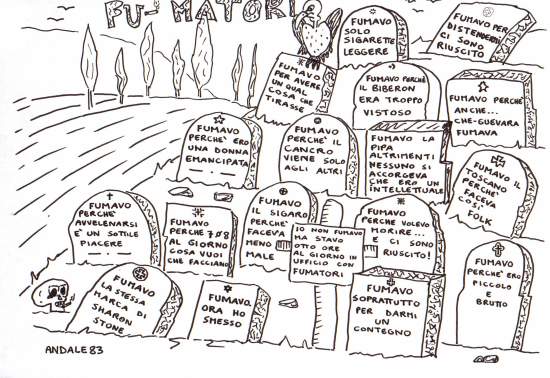 FU-MATORI
FUMAVO
SOLO
SIGARETTE
LEGGERE
FUMAVO PER
DISTENDERMI
CI SONO
RIUSCITO
FUMAVO
PER AVERE
UN QUAL
COSA CHE
TIRASSE
FUMAVO PERCHÈ
IL BIBERON
ERA TROPPO
VISTOSO
FUMAVO PERCHE'
ANCHE...
CHE-GUEVARA
FUMAVA
FUMAVO
PERCHE' ERO
UNA DONNA
EMANCIPATA
FUMAVO
PERCHE' IL
CANCRO
VIENE SOLO
AGLI ALTRI
FUMAVO LA
PIPA
ALTRIMENTI
NESSUNO SI
ACCORGEVA
CHE ERO UN
INTELLETTUALE
FUMAVO IL
TOSCANO
PERCHE'
FACEVA
COSI'
FOLK
FUMAVO
PERCHE'
AVVELENARSI
E' UN SOTILE
PIACERE
FUMAVO
PERCHE' 7Ø8
AL GIORNO
COSA VUOI
CHE FACCIANO
FUMAVO
IL SIGARO
PERCHE'
FACEVA
MENO
MALE
IO NON FUMAVO
MA STAVO
OTTO ORE
AL GIORNO IN
UFFICIO CON
FUMATORI
FUMAVO
PERCHE VOLEVO
MORIRE...
E CI SONO
RIUSCITO!
FUMAVO
PERCHE' ERO
PICCOLO
E
BRUTTO
FUMAVO
LA STESSA
MARCA DI
SHARON
STONE
FUMAVO.
ORA HO
SMESSO
FUMAVO
SOPRATTUTTO
PER DARMI
UN
CONTEGNO
ANDALE 83